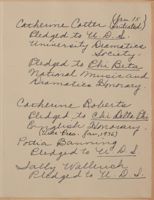 Catherine Cotter (Jan 15
initiated)
Pledged to U. D. S.
University Dramatics
Society
Pledged to Phi Beta
National Music and
Dramatics Honorary.
Catherine Roberts
Pledged to Chi Delta Phi
English Honorary.
(Vice Pres. Jan, 1936)
Portia Banning
Pledged to U D S
Sally Wallwish
Pledged to U. D. S.